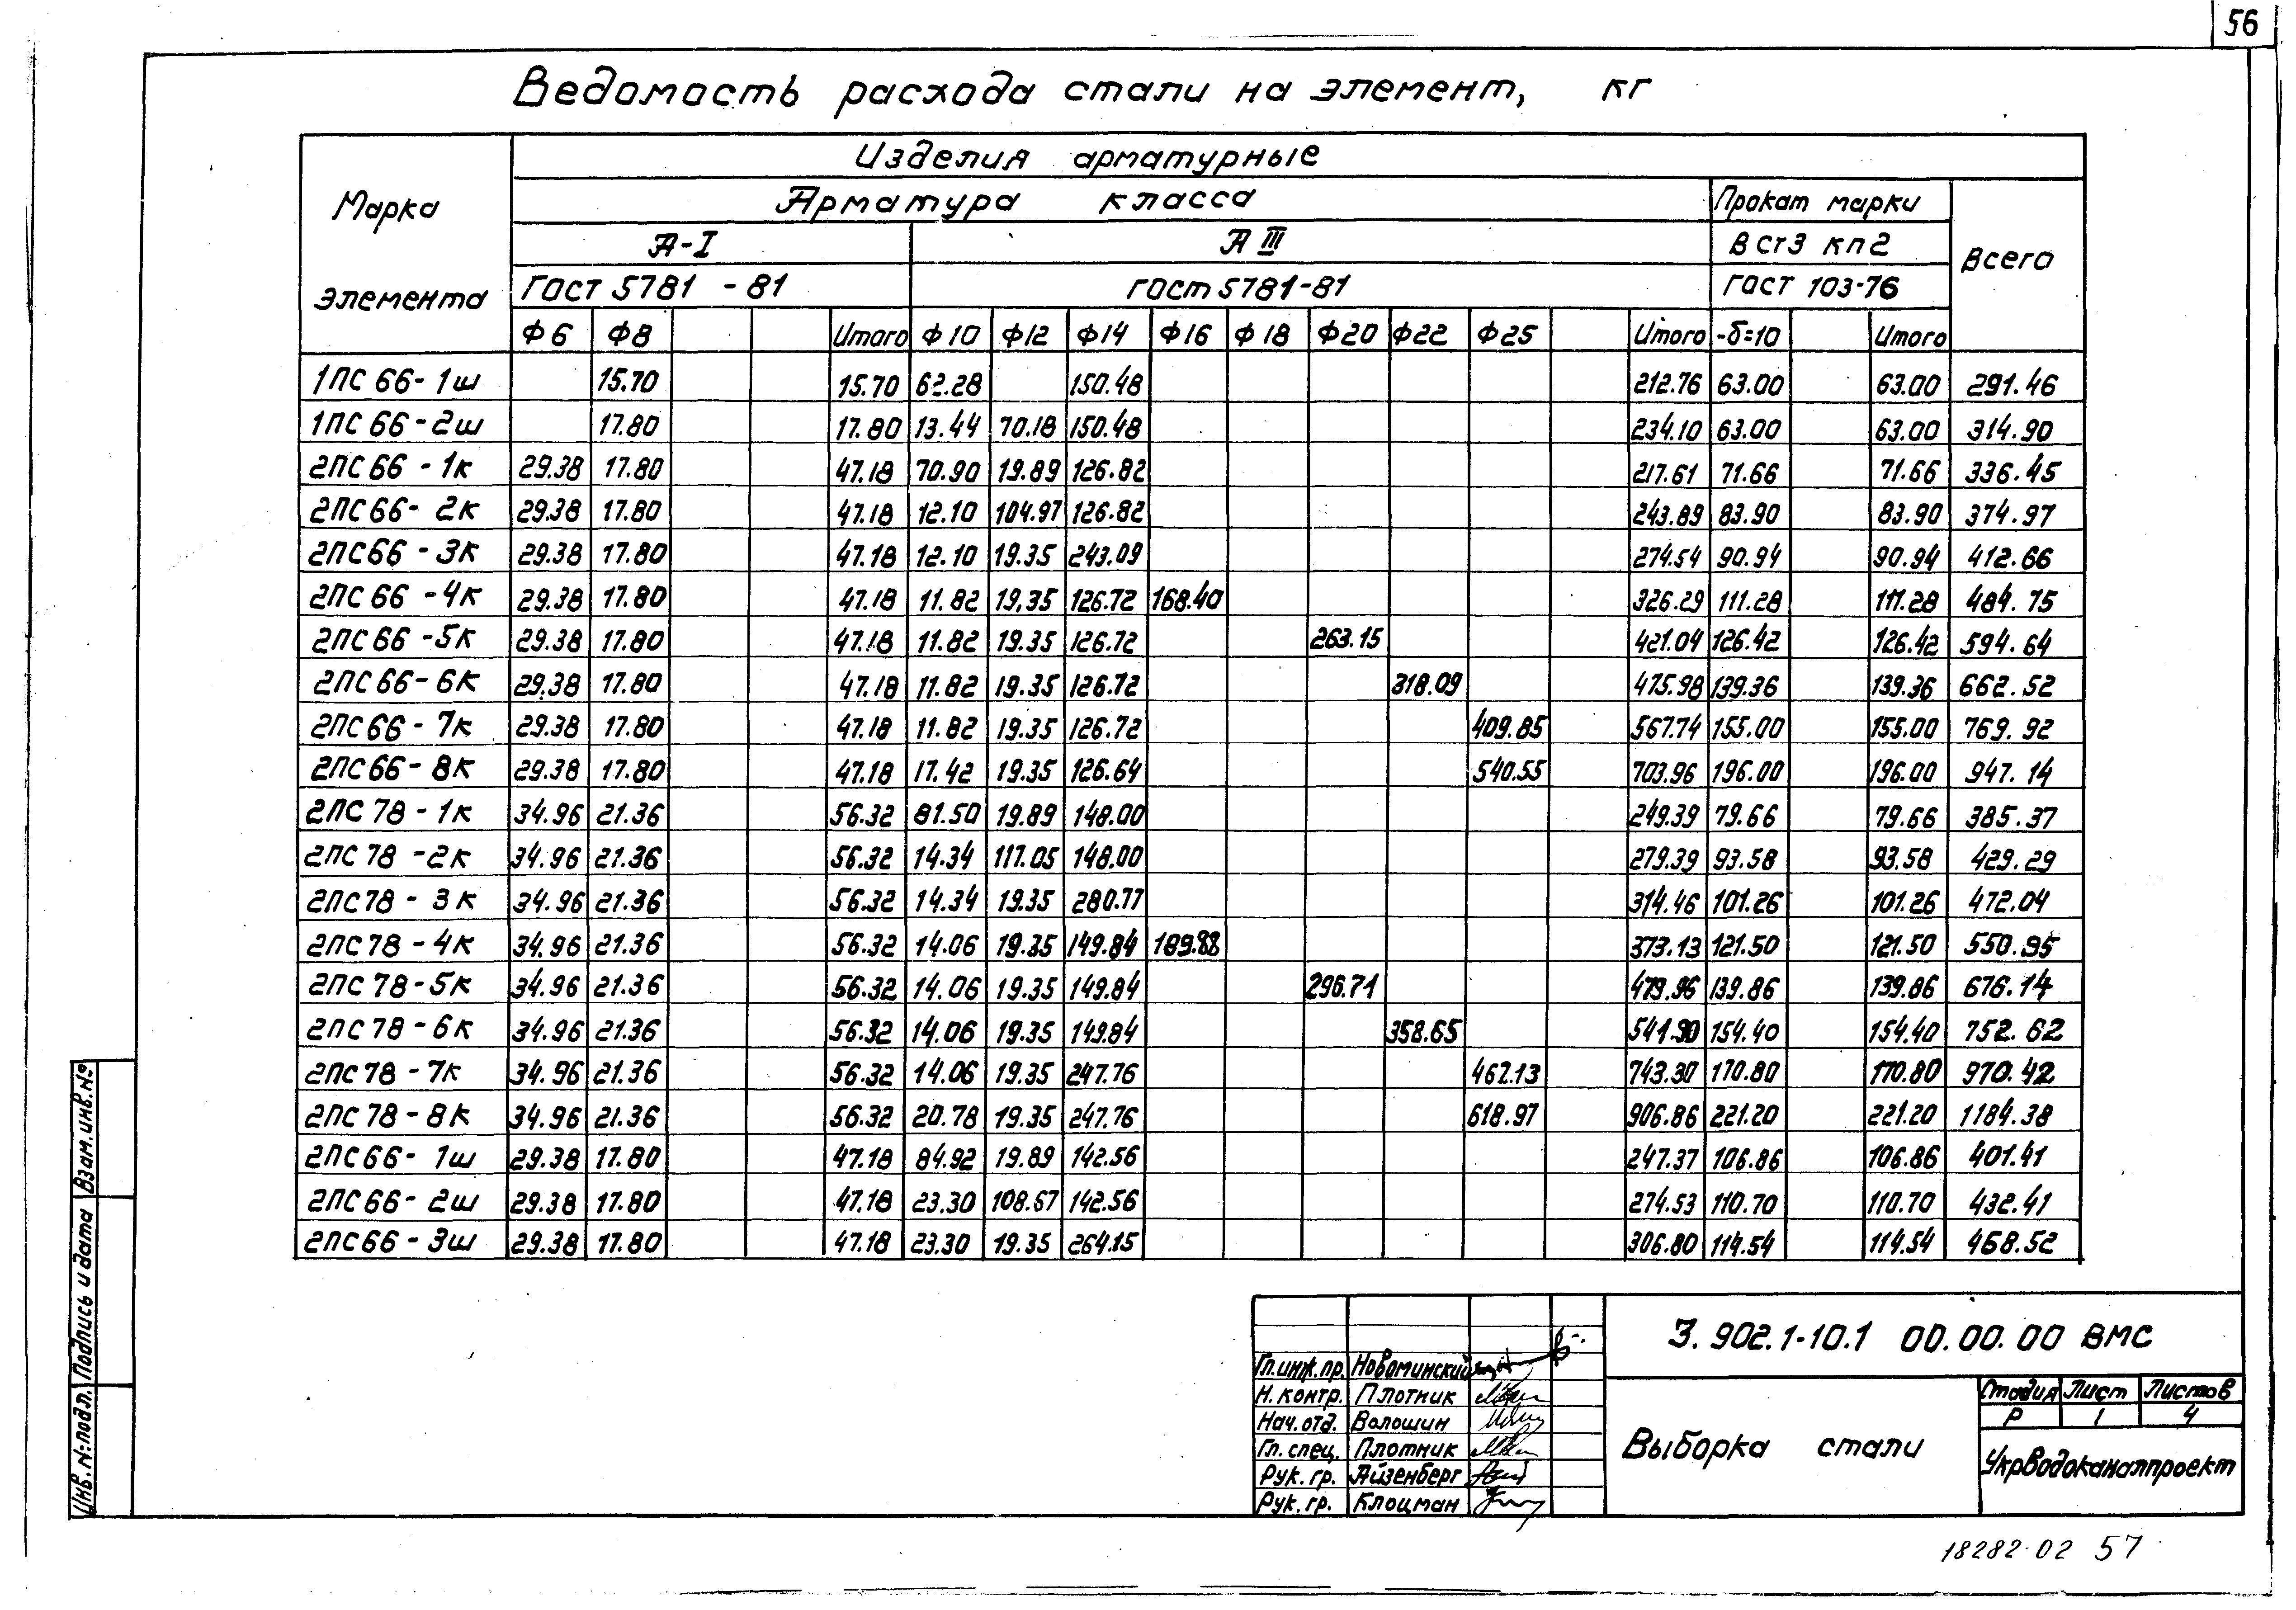 56
Ведомость расхода стали на элемент, кг
Марка элемента
Изделия арматурные
Арматура класса
Прокат марки
Всего
А-I
А III
В ст3 кп2
ГОСТ 5781-81
ГОСТ 5781-81
ГОСТ 103-76
Ф6 Ф8 Итого Ф10 Ф12 Ф14 Ф16 Ф18 Ф20 Ф22 Ф25 Итого -δ=10 Итого
1ПС66-1ш 15.70 15.70 62.28 150.48 212.76 63.00 63.00 291.46
1ПС66-2ш 17.80 17.80 13.44 70.18 150.48 234.10 63.00 63.00 314.90
2ПС66-1к 29.38 17.80 47.18 70.90 19.89 126.82 217.61 71.66 71.66 336.45
2ПС66-2к 29.38 17.80 47.18 12.10 104.97 126.82 243.89 83.90 83.90 374.97
2ПС66-3к 29.38 17.80 47.18 12.10 19.35 243.09 274.54 90.94 90.94 412.66
2ПС66-4к 29.38 17.80 47.18 11.82 19,35 126.72 168.40 326.29 111.28 111.28 484.75
2ПС66-5к 29.38 17.80 47.18 11.82 19.35 126.72 263.15 421.04 126.42 126.42 594.64
2ПС66-6к 29.38 17.80 47.18 11.82 19.35 126.72 318.09 475.98 139.36 139.36 662.52
2ПС66-7к 29.38 17.80 47.18 11.82 19.35 126.72 409.85 567.74 155.00 155.00 769.92
2ПС66-8к 29.38 17.80 47.18 17.42 19.35 126.64 540.55 703.96 196.00 196.00 947.14
2ПС78-1к 34.96 21.36 56.32 81.50 19.89 148.00 249.39 79.66 79.66 385.37
2ПС78-2к 34.96 21.36 56.32 14.34 117.05 148.00 279.39 93.58 93.58 429.29
2ПС78-3к 34.96 21.36 56.32 14.34 19.35 280.77 314.46 101.26 101.26 472.04
2ПС78-4к 34.96 21.36 56.32 14.06 19.35 149.84 189.88 373.13 121.50 121.50 550.95
2ПС78-5к 34.96 21.36 56.32 14.06 19.35 149.84 296.71 479.96 139.86 139.86 676.14
2ПС78-6к 34.96 21.36 56.32 14.06 19.35 149.84 358.65 541.90 154.40 154.40 752.62
2ПС78-7к 34.96 21.36 56.32 14.06 19.35 247.76 462.13 743.30 170.80 170.80 970.42
2ПС78-8к 34.96 21.36 56.32 20.78 19.35 247.76 618.97 906.86 221.20 221.20 1184.38
2ПС66-1ш 29.38 17.80 47.18 84.92 19.89 142.56 247.37 106.86 106.86 401.41
2ПС66-2ш 29.38 17.80 47.18 23.30 108.67 142.56 274.53 110.70 110.70 432.41
2ПС66-3ш 29.38 17.80 47.18 23.30 19.35 264.15 306.80 114.54 114.54 468.52
Взам.инв.№
Подпись и дата
Инв.№подл.
Гл.инж.пр. Новоминский
Н.контр. Плотник
Нач.отд. Волошин
Гл.спец. Плотник
Рук.гр. Айзенберг
Рук.гр. Клоцман
3.902.1-10.1 00.00.00 ВМС
Выборка стали
Стадия Лист Листов
Р 1 4
Укрводоканалпроект
18282-02 57